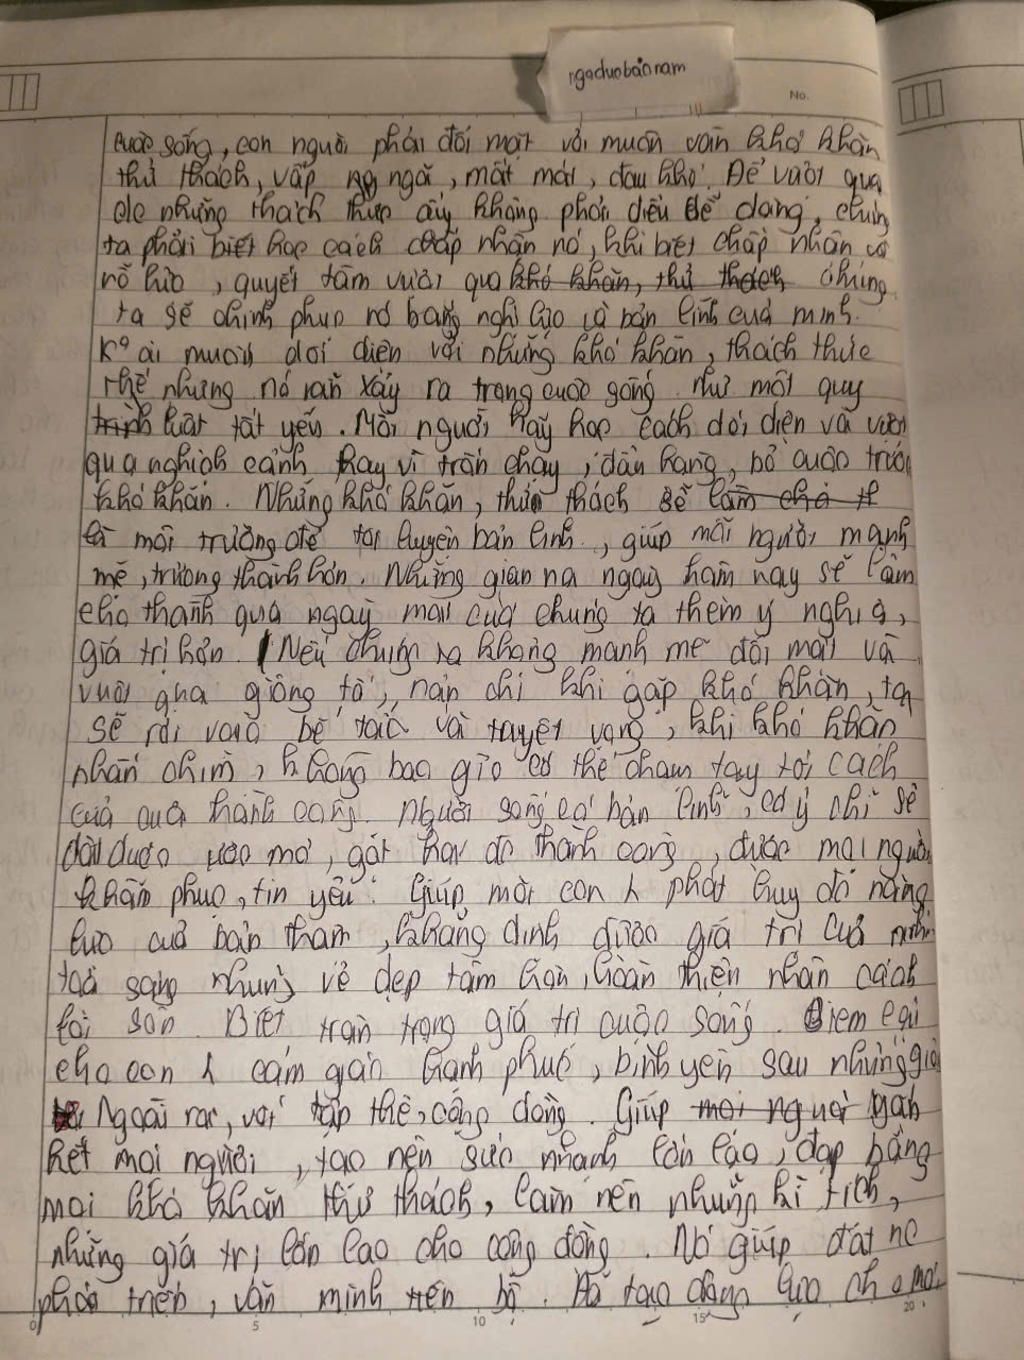 ngaduobảnam
No.
cuộc sống, con người phải đối mặt với muôn vàn khó khăn
thử thách, vấp ngã, mất mát, đau khổ. Để vượt qua
đc những thách thức ấy không phải điều dễ dàng, chúng
ta phải biết học cách chấp nhận nó, khi biết chấp nhận và
nỗ lực, quyết tâm vượt qua khó khăn, thử thách chúng
ta sẽ chinh phục nó bằng nghị lực và bản lĩnh của mình.
K° ai muốn đối diện với những khó khăn, thách thức
thế nhưng nó vẫn xảy ra trong cuộc sống như một quy
trình luật tất yếu. Mỗi người hãy học cách đối diện và vượt
qua nghịch cảnh thay vì trốn chạy, đầu hàng, bỏ cuộc trước
khó khăn. Những khó khăn, thử thách sẽ làm cho
là môi trường để tôi luyện bản lĩnh, giúp mỗi người mạnh
mẽ, trưởng thành hơn. Những gian na ngày hôm nay sẽ làm
cho thành quả ngày mai của chúng ta thêm ý nghĩa,
giá trị hơn. Nếu chúng ta không mạnh mẽ đối mặt và
vượt qua giông tố, nản chí khi gặp khó khăn, ta
sẽ rơi vào bế tắc và tuyệt vọng, khi khó khăn
nhấn chìm, không bao giờ có thể chạm tay tới cách
cửa của thành công. Người sống có bản lĩnh, có ý chí sẽ
đạt được ước mơ, gặt hái đc thành công, được mọi người
khâm phục, tin yêu. Giúp mỗi con λ phát huy đc năng
lực của bản thân, khẳng định được giá trị của mình
toả sáng những vẻ đẹp tâm hồn, hoàn thiện nhân cách
lối sốn. Biết trân trọng giá trị cuộc sống. Đem lại
cho con λ cảm giác hạnh phúc, bình yên sau những
Ngoài ra, với tập thể, cộng đồng. Giúp mọi người gắn
kết mọi người, tạo nên sức mạnh lớn lao, đạp bằng
mọi khó khăn thử thách, làm nên những kì tích,
những giá trị lớn lao cho cộng đồng. Nó giúp đất nc
phát triển, văn minh tiến bộ. Đã tạo động lực cho
0 5 10 15 20